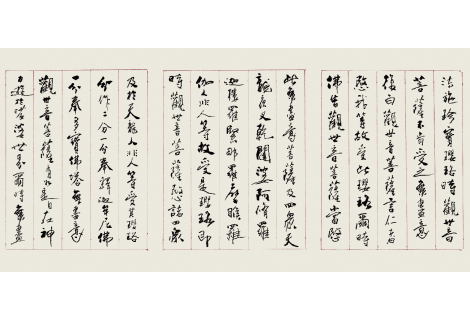 法施珍瓔珞時觀世音
菩薩不肯受之無盡意
復白觀世音菩薩言仁者
愍我等故受此瓔珞爾時
佛告觀世音菩薩當愍
此無盡意菩薩及四眾天
龍夜叉乾闥婆阿修羅
迦樓羅緊那羅摩睺羅
伽人非人等故受是瓔珞即
時觀世音菩薩愍諸四眾
及於天龍人非人等受其瓔珞
分作二分一分奉釋迦牟尼佛
一分奉多寶佛塔無盡意
觀世音菩薩有如是自在神
力遊於娑婆世界爾時無盡